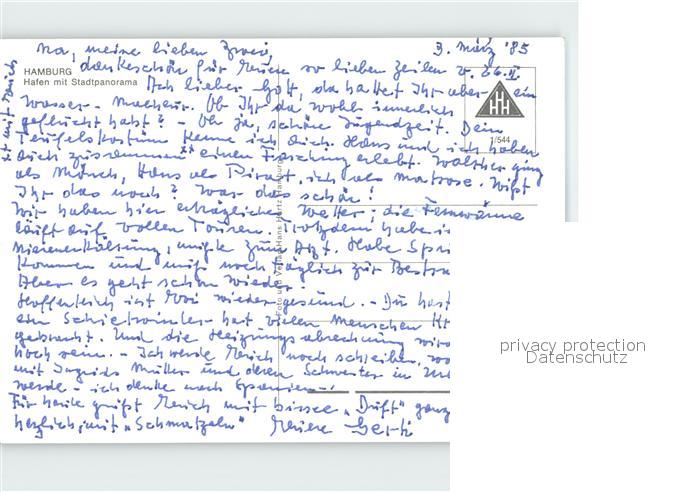 Na, meine lieben Zwei, 3. März '85
HAMBURG
Hafen mit Stadtpanorama
dankeschön für Euren so lieben Zeilen v. 26.II
Ach lieber Gott, da hattet Ihr aber ein
Wasser-Malheur. Ob Ihr da wohl innerlich
geflucht habt? - Oh ja, schöne Jugendzeit. Dein
Teufelskostüm kenne ich. Hans und ich haben
auch zusammen einen Fasching erlebt. Walther ging
als Mönch, Hans als Pirat, ich als Matrose. Wißt
Ihr das noch? War das schön!
Wir haben hier erträgliches Wetter; die Fernwärme
läuft auf vollen Touren. Trotzdem habe i
Nierenerkältung, mußte zum Arzt. Habe Spri
kommen und muß noch täglich zur Bestra
Aber es geht schon wieder!
Hoffentlich ist wieder gesund. - Du hast
ein Schietwinter hat vielen Menschen
gebracht. Und die Heizungsabrechnung wird
noch - Ich werde Euch noch schreiben, wo
mit Ingrids Mutter und deren Schwester in
werde - ich denke nach Spanien -!
Für heute grüßt Euch mit bissel "Duft" ganz
herzlich, mit "Schmatzeln" Eure Gerti
HHH
1/544
Foto und Verlag Hans Hartz Hamburg
privacy protection
Datenschutz